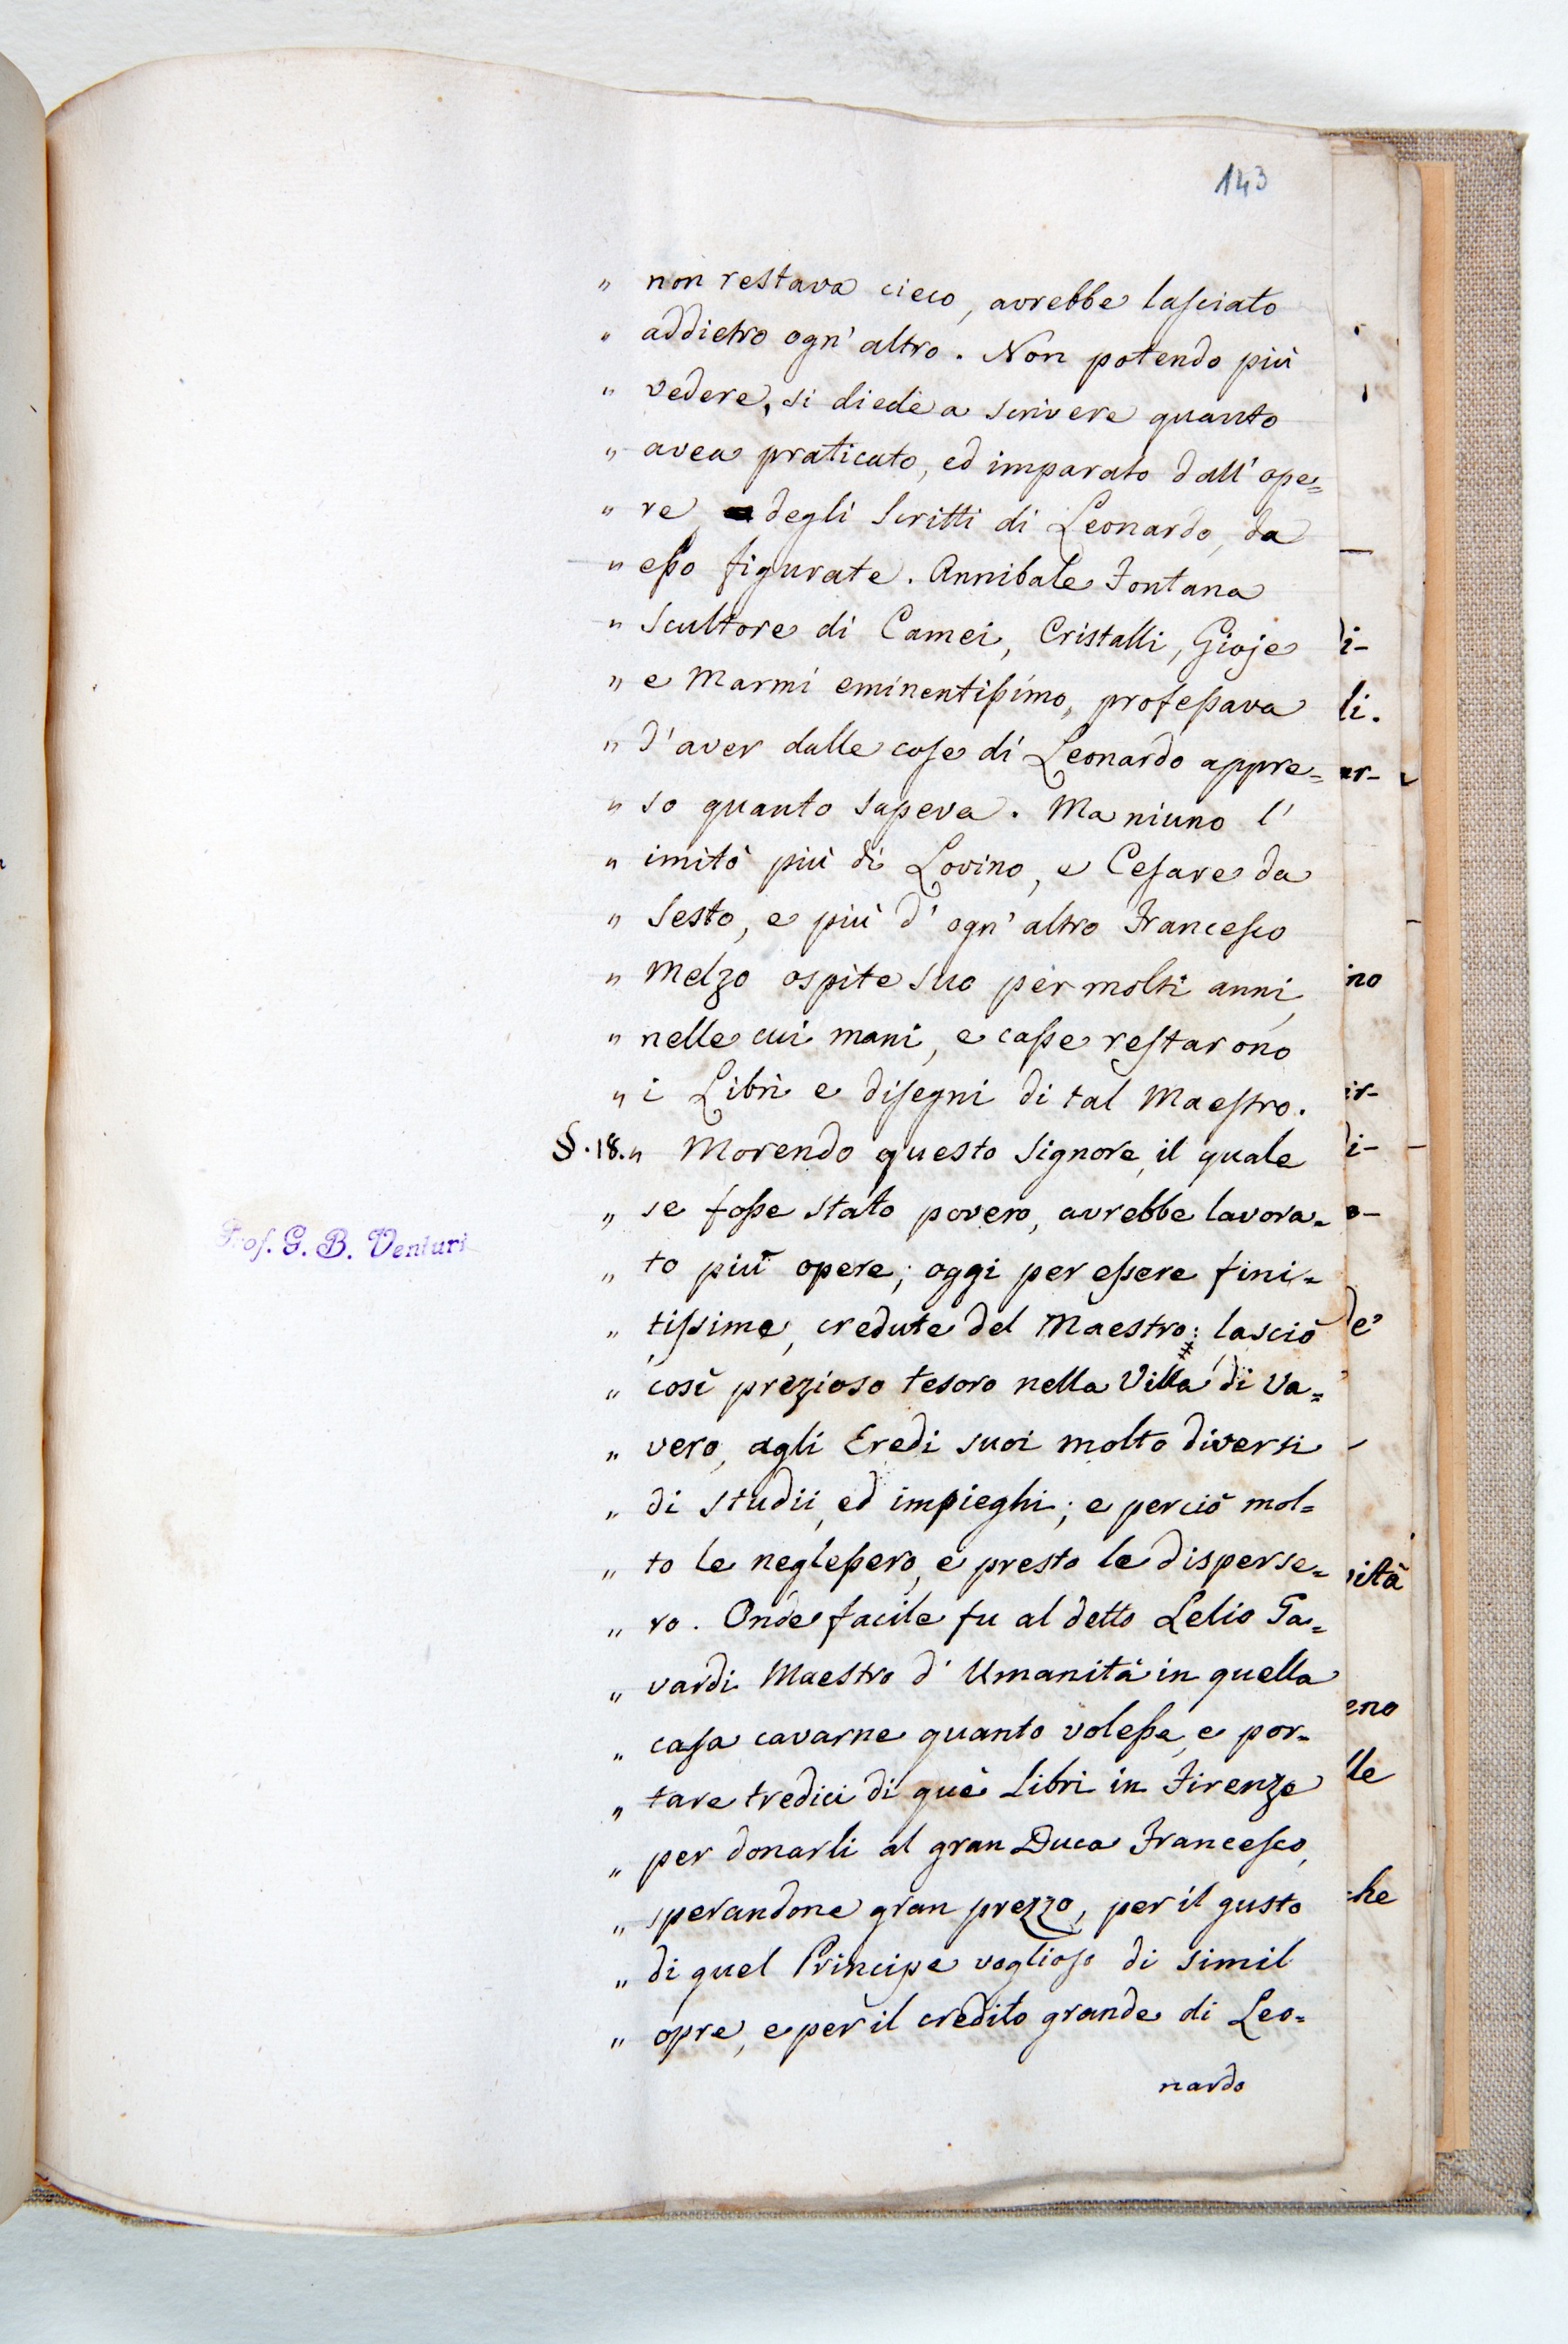 143
„ non restava cieco, avrebbe lasciato
„ addietro ogn' altro. Non potendo più
„ vedere, si diede a scrivere quanto
„ avea praticato, ed imparato dall' ope=
„ re degli Scritti di Leonardo, da
„ esso figurate. Annibale Fontana
„ Scultore di Camei, Cristalli, Gioje
„ e Marmi eminentissimo, professava
„ d'aver dalle cose di Leonardo appre=
„ so quanto sapeva. Ma niuno l'
„ imitò più di Lovino, e Cesare da
„ Sesto, e più d' ogn' altro Francesco
„ Melzo ospite suo per molti anni,
„ nelle cui mani, e casse restarono
„ i Libri e disegni di tal Maestro.
§. 18. „ Morendo questo Signore, il quale
„ se fosse stato povero, avrebbe lavora=
„ to più opere; oggi per essere fini=
„ tissime, credute del Maestro: lasciò
„ così prezioso tesoro nella Villa di Va=
„ vero, agli Eredi suoi molto diversi
„ di studii, ed impieghi; e perciò mol=
„ to le neglessero, e presto le disperse=
„ ro. Onde facile fu al detto Lelio Ga=
„ vardi Maestro d' Umanità in quella
„ casa cavarne quanto volesse, e por=
„ tare tredici di què Libri in Firenze
„ per donarli al gran Duca Francesco,
„ sperandone gran prezzo, per il gusto
„ di quel Principe voglioso di simil
„ opre, e per il credito grande di Leo=
nardo
Prof. G. B. Venturi